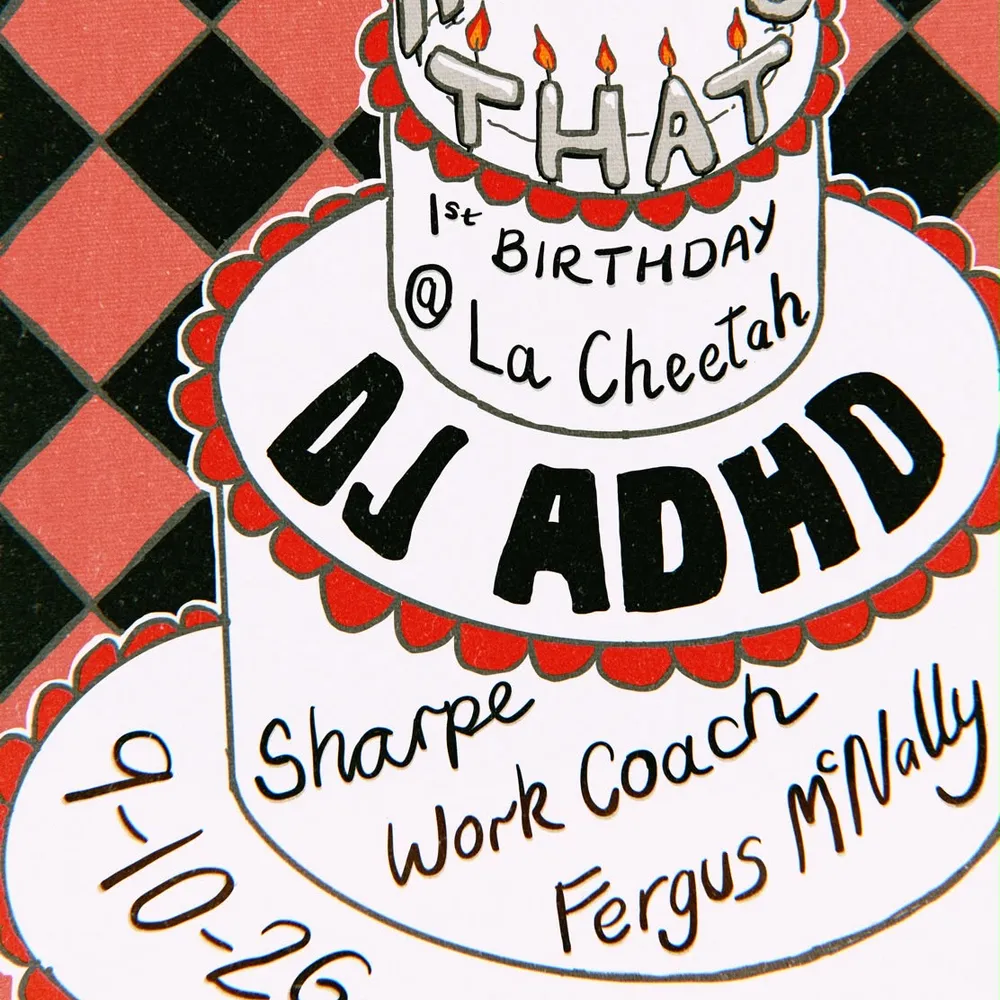 THAT
1st BIRTHDAY
@ La Cheetah
DJ ADHD
Sharpe
Work Coach
Fergus McNally
9-10-26